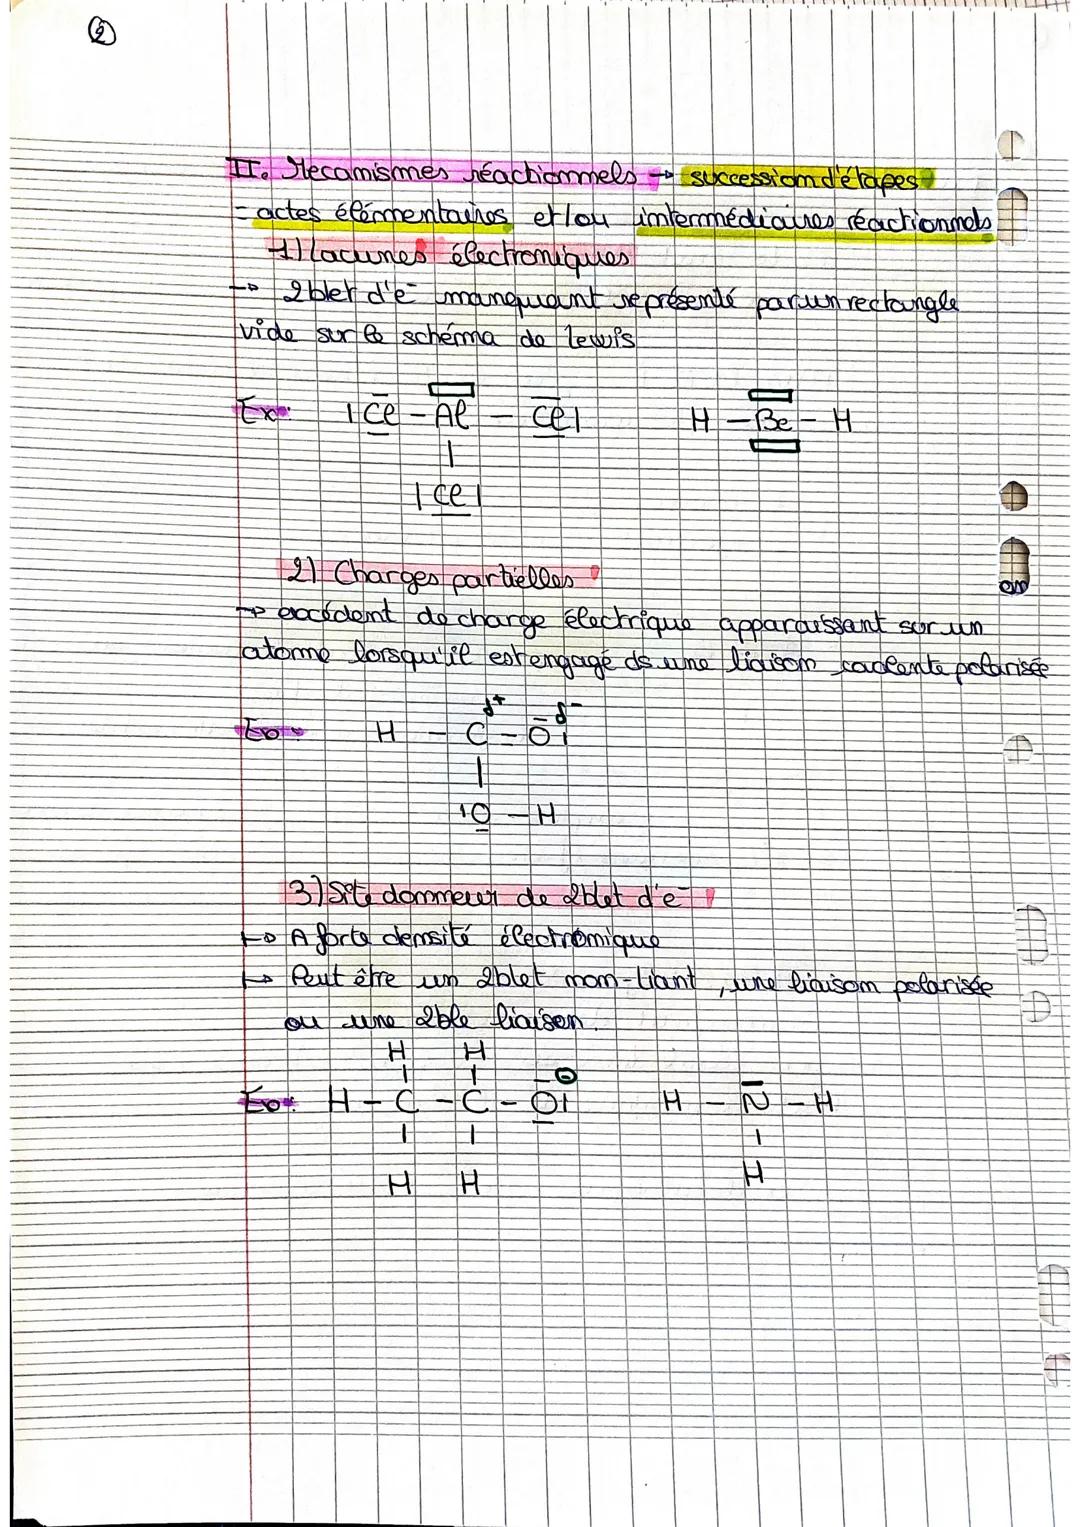 ②
II. Mecanismes réactionnels → succession d'étapes
= actes élémentaires et/ou intermédiaires réactionnels
1) lacunes électroniques
→ 2blet d'e⁻ manquant représenté par un rectangle
vide sur le schéma de Lewis
Ex: |Cl - Al - Cl| H - Be - H
|
|Cl|
2) Charges partielles
→ excédent de charge électrique apparaissant sur un
atome lorsqu'il est engagé ds une liaison covalente polarisée
δ+ δ-
Ex: H - C = O|
|
|O - H
3) Site donneur de 2blet d'e⁻
→ A forte densité électronique
→ Peut être un 2blet non-liant, une liaison polarisée
ou une 2ble liaison.
H H
| | ⊖
Ex: H - C - C - O| H - N - H
| | |
H H H